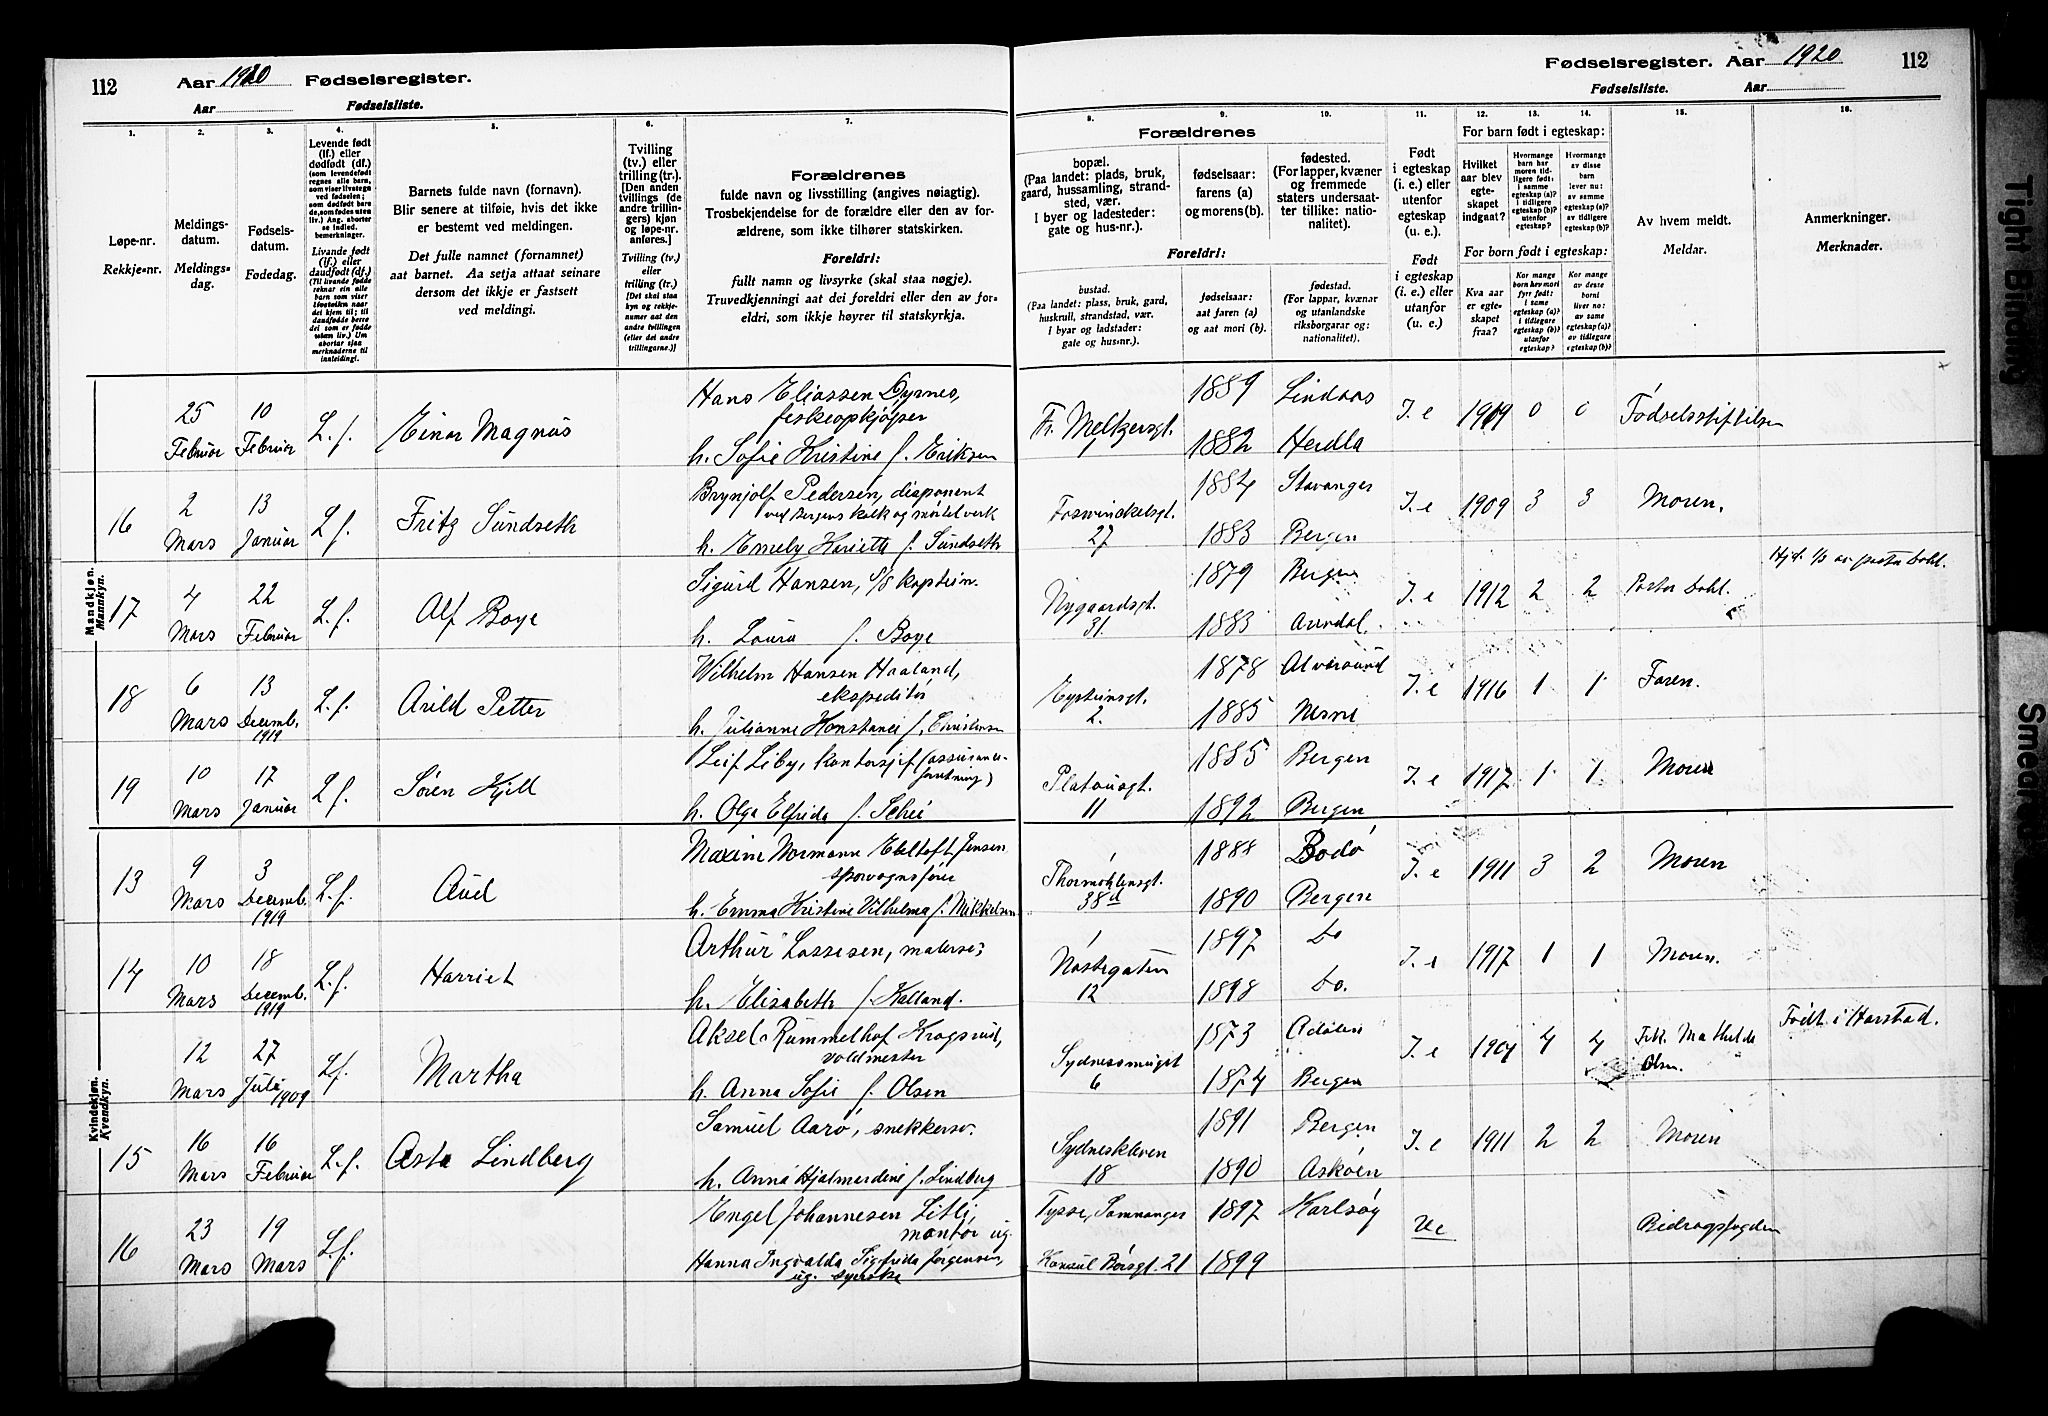 112
Aar 1920 Fødselsregister.
Aar Fødselsliste.
Fødselsregister. Aar 1920
112
Fødselsliste. Aar
1.
Løpe-nr.
Rekkje-nr.
2.
Meldings-
datum.
Meldings-
dag.
3.
Fødsels-
datum.
Fødedag.
4.
Levende født
(lf.) eller
dødfødt (df.)
5.
Barnets fulde navn (fornavn).
Blir senere at tilføie, hvis det ikke
er bestemt ved meldingen.
Det fulle namnet (fornamnet)
aat barnet. Aa setja attaat seinare
dersom det ikkje er fastsett
ved meldingi.
6.
Tvilling
(tv.) eller
trilling (tr.).
[Den anden
tvillings (de
andre trillin-
gers) kjøn
og løpe-nr.
anføres.]
Tvilling (tv.)
eller
trilling (tr.)
7.
Forældrenes
fulde navn og livsstilling (angives nøiagtig).
Trosbekjendelse for de forældre eller den av for-
ældrene, som ikke tilhører statskirken.
Foreldri:
fullt namn og livsyrke (skal staa nøgje).
Truvedkjenningi aat dei foreldri eller den av for-
eldri, som ikkje høyrer til statskyrkja.
Forældrenes
8.
bopæl.
(Paa landet: plads, bruk,
gaard, hussamling, strand-
sted, vær.
I byer og ladesteder:
gate og hus-nr.).
9.
fødselsaar:
farens (a)
og morens (b).
10.
fødested.
(For lapper, kvæner
og fremmede
staters undersaat-
ter tillike: natio-
nalitet).
Foreldri:
bustad.
(Paa landet: plass, bruk, gard,
huskrull, strandstad, vær.
I byar og ladstader:
gate og hus-nr.).
fødselsaar:
aat faren (a)
og aat mori (b).
fødestad.
(For lappar, kvænar
og utanlandske
riksborgarar og:
nationalitet).
11.
Født
i egteskap
(i. e.) eller
utenfor
egteskap
(u. e.).
Født
i egteskap
(i. e.) eller
utanfor
(u. e.).
For barn født i egteskap:
12.
Hvilket
aar blev
egte-
skapet
indgaat?
13.
Hvormange
barn har
moren tid-
ligere født:
i samme
egteskap (a)?
utenfor
egteskap?
14.
Hvormange
av disse
barn
lever nu:
av samme
egteskap (a)?
av tidligere
egteskap (b)?
For born født i egteskap:
Kva aar
er egte-
skapet
fraa?
15.
Av hvem meldt.
Meldar.
16.
Anmerkninger.
Merknader.
Mandkjøn.
Mannkyn.
25 Februar 10 Februar L. f. Einar Magnus
Hans Eliassen Dyrnes,
feskeopkjøper
h. Sofie Kristine f. Eriksen
Fr. Meltzersgt. 1889 Lindaas
1882 Herdla
I. e 1919 0 0 Fødselsstiftelsen
16 2 Mars 13 Januar L f. Fritz Sundseth
Brynjolf Pedersen, disponent
ved Bergens kalk og mørtelverk
h. Emely Hariette f. Sundseth
Foswinckelsgt. 27 1884 Stavanger
1883 Bergen
I. e 1909 3 3 Moren.
17 4 Mars 22 Februar L. f. Alf Boye
Sigurd Hansen, S/S kaptein.
h. Laura f. Boye
Nygaardsgt. 31. 1879 Bergen
1883 Arendal.
I. e 1912 2 2 Pastor Dahl.
Hjd. 1/3 av pastor Dahl.
18 6 Mars 13 Decemb. 1919 L. f. Arild Petter
Wilhelm Hansen Haaland,
ekspeditør
h. Julianne Konstance f. Christensen
Eysteinsgt. 2. 1878 Alversund
1885 Nesne
I. e 1916 1 1 Faren.
19 10 Mars 17 Januar L f. Søren Kjell
Leif Liby, kontorsjef (assurance-
forretning)
h. Olga Elfrida f. Schei
Platousgt. 11 1885 Bergen
1892 Bergen
I. e 1917 1 1 Moren
Kvindekjøn.
Kvendkyn.
13 9 Mars 3 Decemb. 1919 L. f. Aud
Maxine Normann Ebeltoft Jensen
sporvognsfører
h. Emma Kristine Vilhelma f. Mikkelsen
Thormøhlensgt. 38d 1888 Bodø
1890 Bergen
I. e 1911 3 2 Moren
14 10 Mars 18 Decemb. 1919 L. f. Harriet
Arthur Lassesen, malersv.
h. Elisabeth f. Kalland.
Nøstegaten 12 1897 Do
1898 Do.
I. e 1917 1 1 Moren.
15 12 Mars 27 Juli 1909 L f. Martha
Aksel Rummelhof Kragsrud,
voldmester
h. Anna Sofie f. Olsen
Sydnessmuget 6 1873 Adalen
1874 Bergen
I. e 1901 4 4 Frk. Mathilde Olsen.
Født i Harstad.
15 16 Mars 16 Februar L. f. Asta Lindberg
Samuel Aarø, snekkersv.
h. Anna Hjalmerdine f. Lindberg
Sydneskleven 18 1891 Bergen
1890 Askøen
I. e 1911 2 2 Moren
16 23 Mars 19 Mars L. f.
Engel Johannesen Litli,
montør ug.
Hanna Ingvalda Sigfrida Jørgensen,
ug. syerske
Tysse, Samnanger 1897 Karlsøy
Konsul Børsgt. 21 1899
Ue Bidragsfogden
Tight Binding